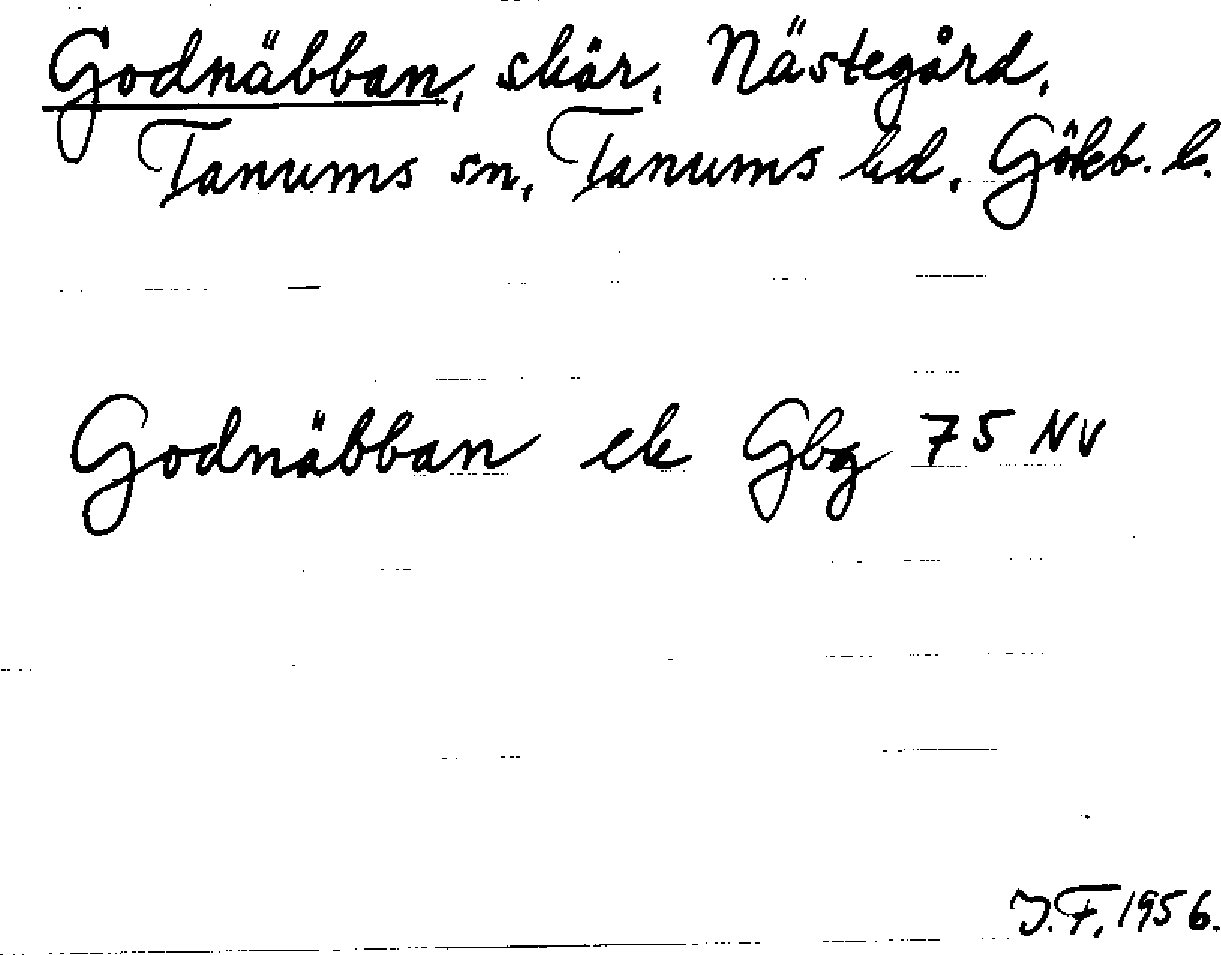 Godnäbban, skär, Nästegård,
Tanums sn, Tanums hd. Gökb. l.
Godnäbban ek Gbg 75 NV
J.F. 1956.